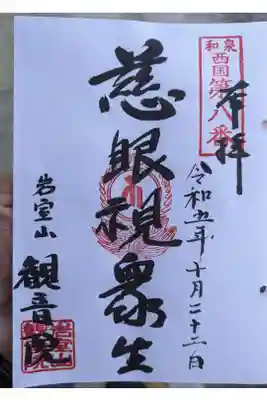 奉拝
和泉
西国
第八番
令和五年十月二十二日
慈眼視衆生
岩室山
観音院
岩室山
観音院